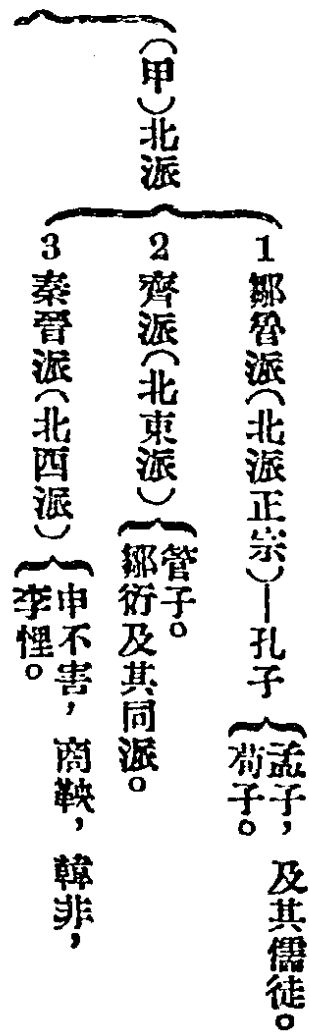 （甲）北派
1 鄒魯派（北派正宗）—孔子
孟子，及其儒徒。
荀子。
2 齊派（北東派）
管子。
鄒衍及其同派。
3 秦晉派（北西派）
申不害，商鞅，韓非，
李悝。